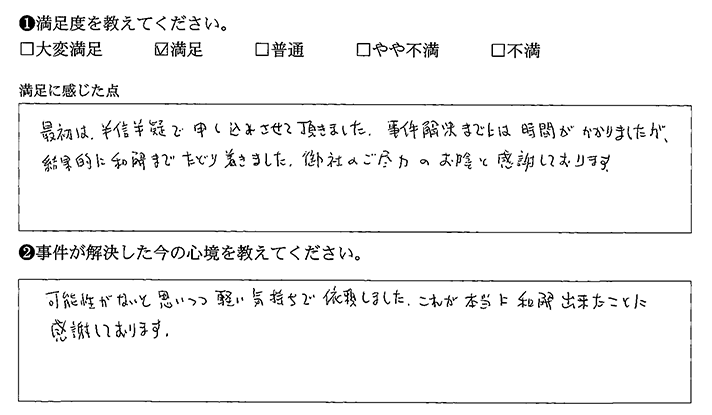 ❶満足度を教えてください。
□大変満足 ☑満足 □普通 □やや不満 □不満
満足に感じた点
最初は、半信半疑で申し込みさせて頂きました。事件解決までには時間がかかりましたが、
結果的に和解までたどり着きました。御社のご尽力のお陰と感謝しております。
❷事件が解決した今の心境を教えてください。
可能性がないと思いつつ軽い気持ちで依頼しました。これが本当に和解出来たことに
感謝しております。